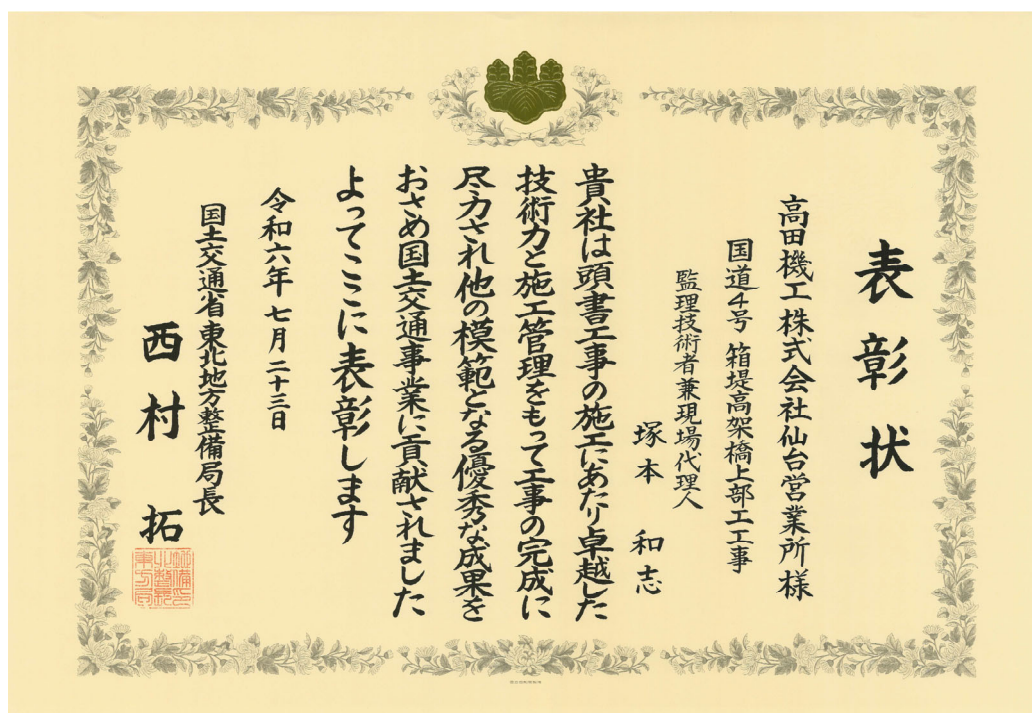 表彰状
高田機工株式会社仙台営業所様
国道4号 箱堤高架橋上部工工事
監理技術者兼現場代理人
塚本 和志
貴社は頭書工事の施工にあたり卓越した
技術力と施工管理をもって工事の完成に
尽力され他の模範となる優秀な成果を
おさめ国土交通事業に貢献されました
よってここに表彰します
令和六年七月二十三日
国土交通省東北地方整備局長
西村 拓